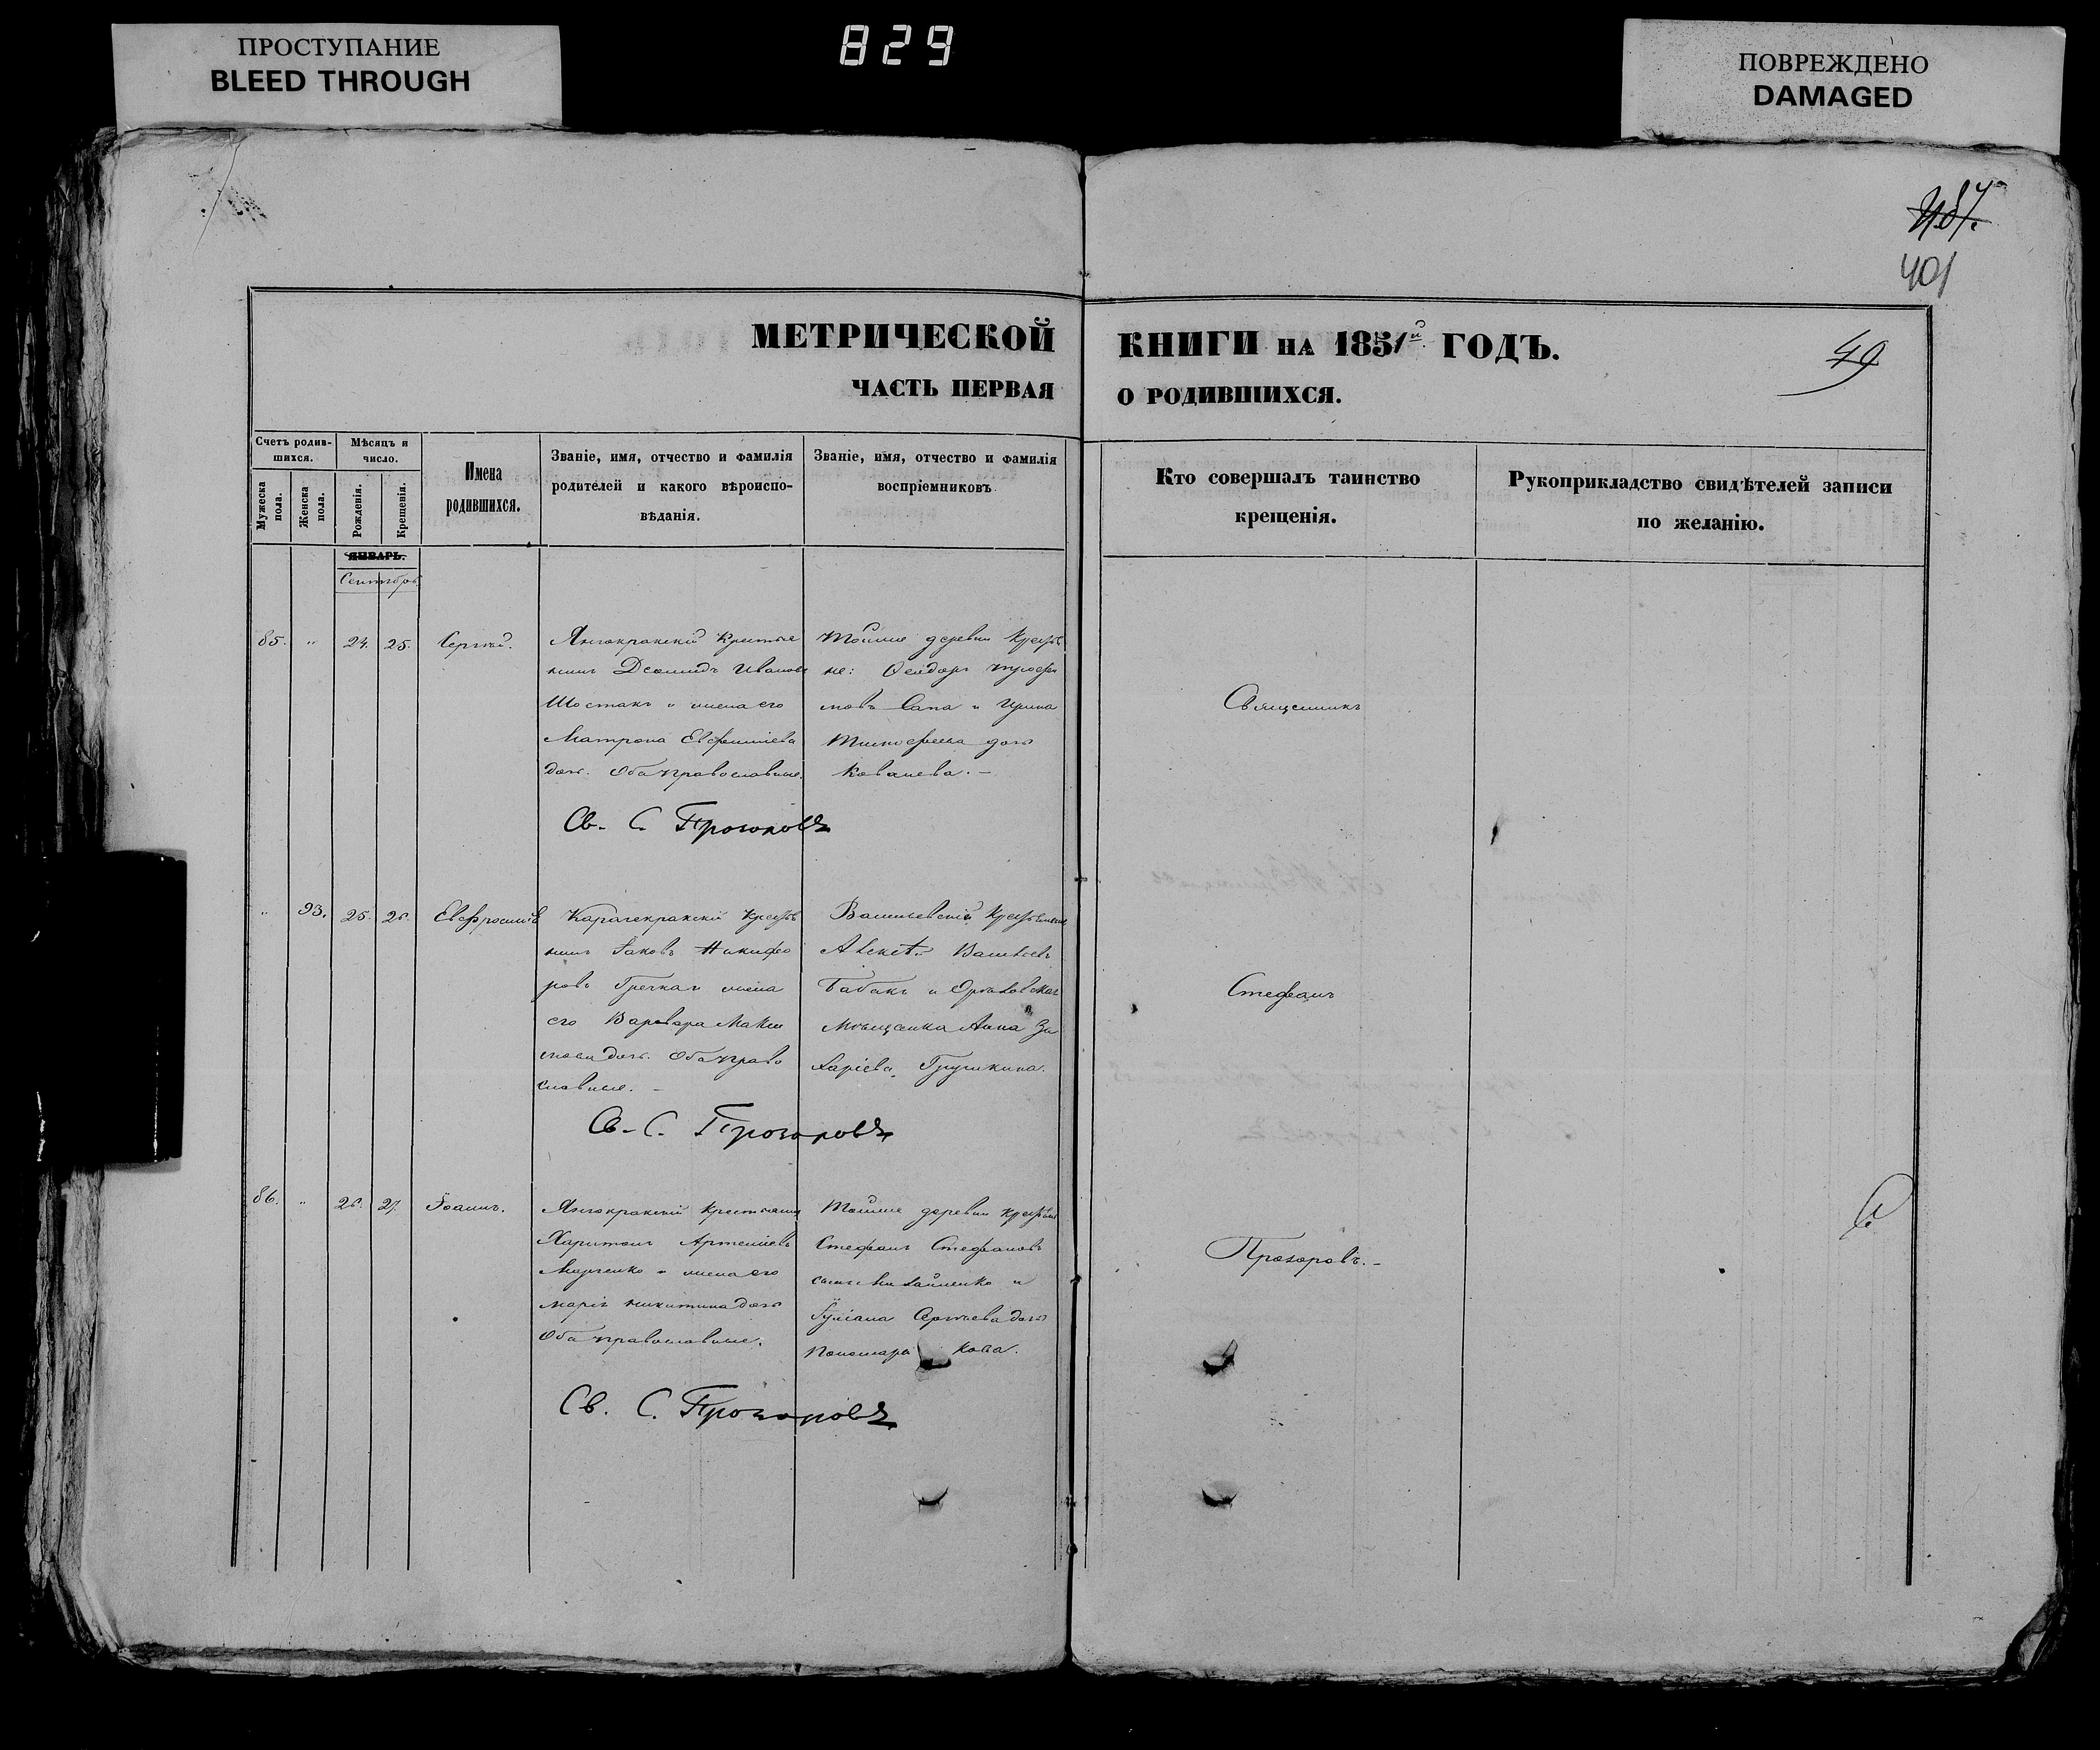 ПРОСТУПАНИЕ
BLEED THROUGH
829
ПОВРЕЖДЕНО
DAMAGED
401
МЕТРИЧЕСКОЙ КНИГИ НА 1851й ГОДЪ.
49
ЧАСТЬ ПЕРВАЯ О РОДИВШИХСЯ.
Счетъ родив-
шихся.
Мужеска пола.
Женска пола.
Мѣсяцъ и
число.
Рожденія.
Крещенія.
Имена
родившихся.
Званіе, имя, отчество и фамилія
родителей и какого вѣроиспо-
вѣданія.
Званіе, имя, отчество и фамилія
воспріемниковъ.
Кто совершалъ таинство
крещенія.
Рукоприкладство свидѣтелей записи
по желанію.
ЯНВАРЬ.
Сентябрь
85. " 24. 25. Сергѣй.
Янчокракскій Крестья
нинъ Деомидъ Ивановъ
Шостакъ и жена его
Матрона Евфиміева
доч. Оба православные.
Тойже деревни Крестья
не: Феодоръ Трофи
мовъ Сапа и Ирина
Тимофеева дочь
Ковалева. –
Св. С. Прохоровъ
" 93. 25. 26. Евфросинія
Карачекракскій Крестья
нинъ Іаковъ Никифо
ровъ Гречка и жена
его Варвара Макси
мова доч. Оба право
славные. –
Васильевскій Крестьянинъ
Алексѣй Васильевъ
Бабакъ и Ореховская
Мѣщанка Анна За
харіева Грушкина.
Св. С. Прохоровъ
86. " 26. 27. Іоаннъ.
Янчокракскій Крестьянинъ
Харитонъ Артеміевъ
Марченко и жена его
Марія Никитина дочь
Оба православные.
Тойже деревни Крестьяне
Стефанъ Стефановъ
сынъ
Іуліана Сергѣева дочь
Пономаренкова.
Св. С. Прохоровъ
Священникъ
Стефанъ
Прохоровъ. –